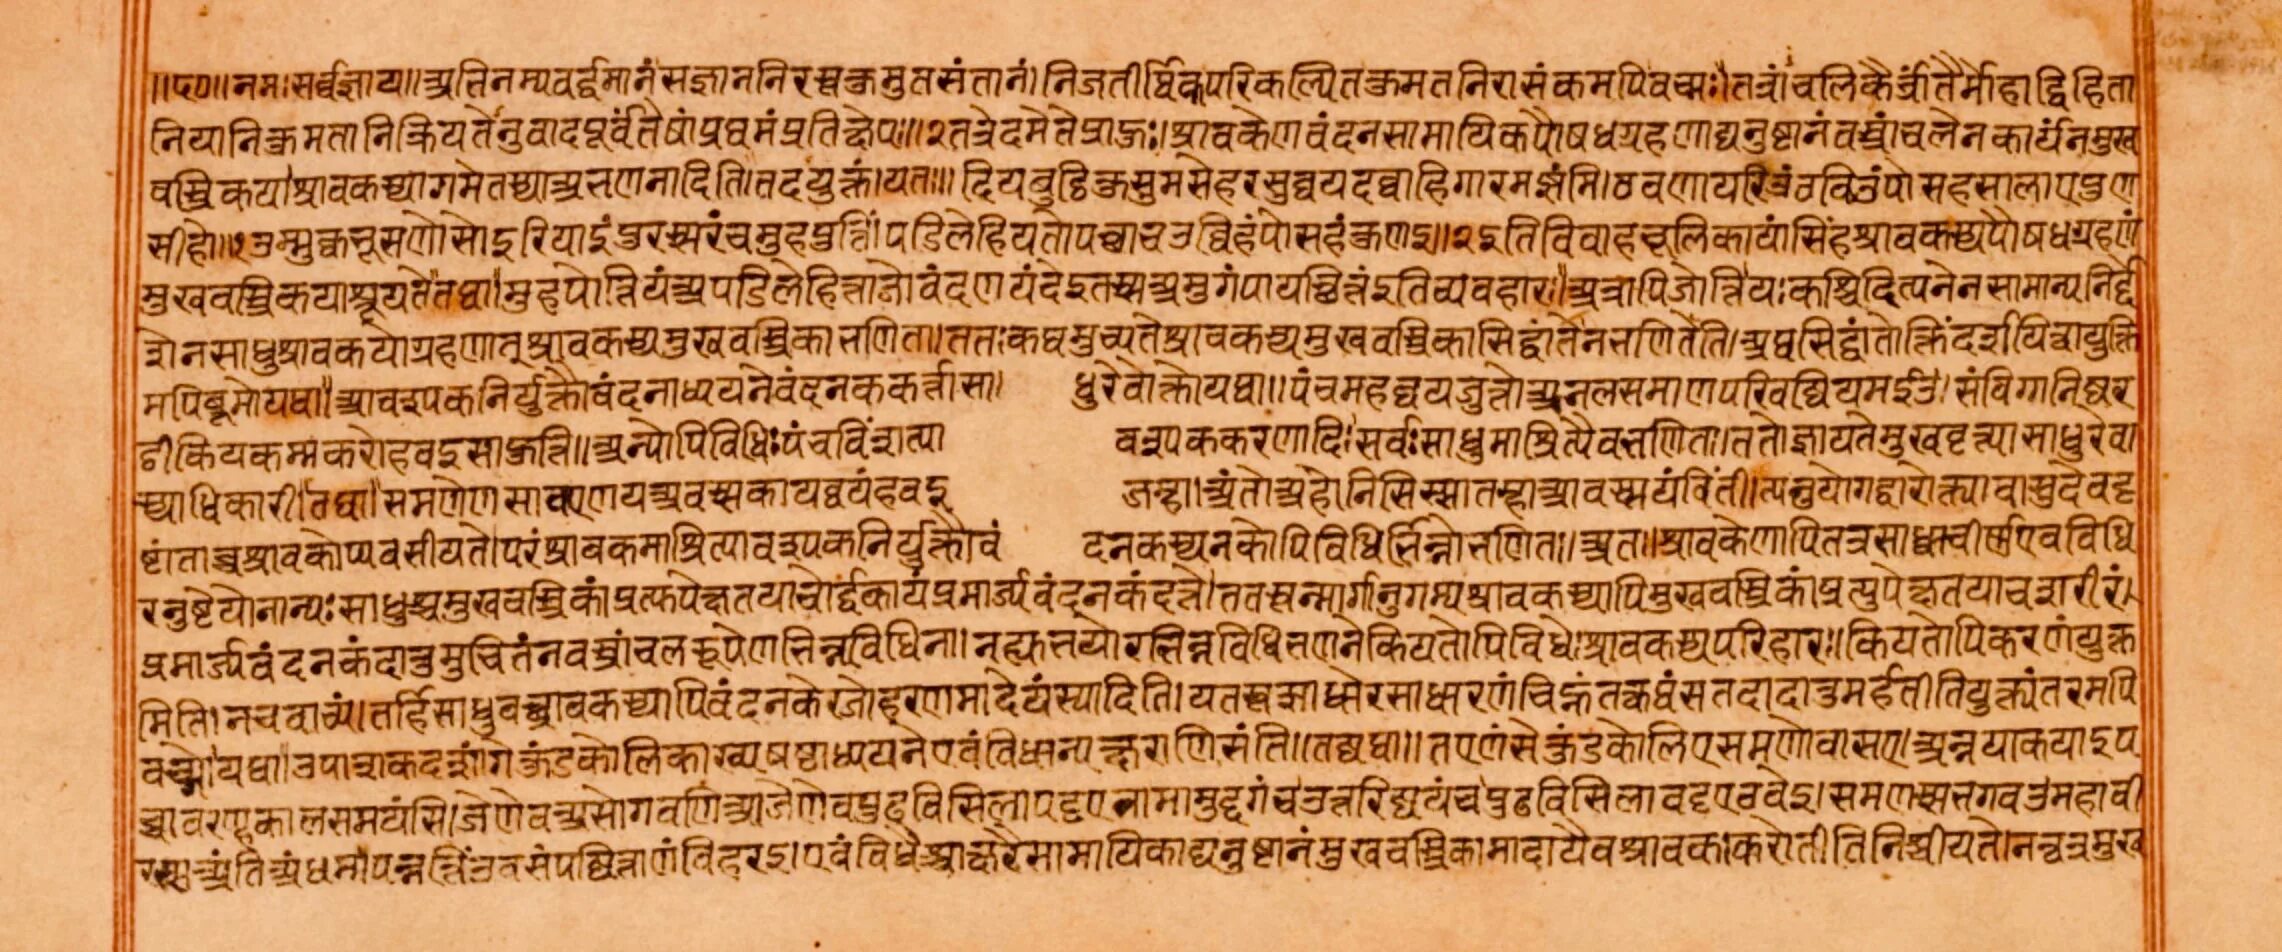 ॥ए०॥नमः सर्वज्ञाय॥प्रतिनम्य वर्द्धमानं सज्ञाननिरस्तकुमुतसंतानं। निजतीर्थिकपरिकल्पितकुमतनिरासं कमपि वक्ष्मः॥तत्रांचलिकैर्भ्रांतैर्मोहाद्विहिता
नि यानि कुमतानि क्रियतेनुवादपूर्वं तेषां प्रथमं प्रतिक्षेपः॥२तत्रेदमेते प्राहुः।श्रावकेण वंदनसामायिकपौषधग्रहणाद्यनुष्टानं वस्त्रांचलेन कार्यं न मुख
वस्त्रिकया श्रावकस्यागमे तस्या अभणनादिति।तदयुक्तं।यतः॥ दियवुट्ठिकुसुमसेहर मुव्वय दव्वाहिगारमज्झंमि।ठवणायरिअं ठविउं पोसहसालाए पुण
सीहो॥१उम्मुक्कभूसणो सो इरियाइ पुरस्सरं च मुहपुत्तिं।पडिलेहिय तो पच्छा चउव्विहं पोसहं कुणइ॥२इति विवाहचूलिकायां सिंहश्रावकस्य पौषधग्रहणं
मुखवस्त्रिकया श्रूयते तथा।मुहपोत्तियं अपडिलेहित्ता जो वंदणयं देइ तस्स अमुगं पायच्छित्तं इति व्यवहारः॥अत्रापि जोत्ति यः कश्चिदित्यनेन सामान्यनिर्द्दे
शेन साधुश्रावकयोग्रहणात् श्रावकस्य मुखवस्त्रिका भणिता।ततः कथमुच्यते श्रावकस्य मुखवस्त्रिका सिद्धांते न भणितेति।अथ सिद्धांतोक्तिं दर्शयित्वा युक्ति
मपि ब्रूमो यथा॥आवश्यकनिर्युक्तौ वंदनाध्ययने वंदनककर्त्ता सा। धुरेवोक्तो यथा॥पंचमहव्वयजुत्तो अनलसमाणपरिवज्जियमईउ। संविगानिज्जर
ठी किइकम्मकरो हवइ साहुत्ति॥अन्योपि विधिः पंचविंशत्या वश्यककरणादिः सर्वः साधुमाश्रित्यैव भणितः।ततो ज्ञायते मुखवस्त्र्या साधुरेवा
स्याधिकारी।तथा।समणेण सावएण य अवस्सकायव्वयं हवइ जम्हा।अंतो अहोनिसिस्सा तम्हा आवस्सयं विंती।त्यनुयोगद्वारोक्त्या वासुदेवदृ
ष्टांताच्च श्रावकोप्यवसीयते।परं श्रावकमाश्रित्यावश्यकनिर्युक्तौ वं दनकस्य न कोपि विधिर्भिन्नो भणितः।अतः।श्रावकेणापि तत्र साध्वाचीर्ण एव विधि
रनुष्टेयो नान्यः साधुश्च मुखवस्त्रिकां प्रत्युपेक्ष तया चोर्द्धकायं प्रमार्ज्य वंदनकं दत्ते।ततस्तन्मार्गानुगम्य श्रावकस्यापि मुखवस्त्रिकां प्रत्युपेक्ष तया च शरीरं
प्रमार्ज्य वंदनकं दातुमुचितं न वस्त्रांचलरूपेण भिन्नविधिना।न ह्युभयोरभिन्नविधिभणने कियतोपि विधेः श्रावकस्य परिहारः।कियतोपि करणं युक्त
मिति।न च वाच्यं।तर्हि साधुवच्छ्रावकस्यापि वंदनके रजोहरणमादेयं स्यादिति।यतस्तत्साधोरसाधारणं चिह्नं तत्कथं स तदादातुमर्हतीति युक्त्यंतरमपि
वक्ष्मो यथा॥उपाशकदशांगे कुंडकोलिकाख्यषष्टाध्ययने एवंविधान्यक्षराणि संति।तद्यथा॥तएणं से कुंडकोलिए समणोवासए।अन्नया कयाइ प
च्चावरण्हकालसमयंसि।जेणेव असोगवणिआ जेणेव पुढविसिलापट्टए नामामुद्दगं च उत्तरिज्जयं च पुढविसिलावट्टए ठवेइ।समणस्स भगवउ महावी
रस्स अंतिअं धम्मपन्नत्तिं उवसंपज्जित्ताणं विहरइ।एवंविधै सामायिकाद्यनुष्टानं मुखवस्त्रिकामादायैव श्रावकः करोतीति निश्चीयते।नन्वत्र मुख